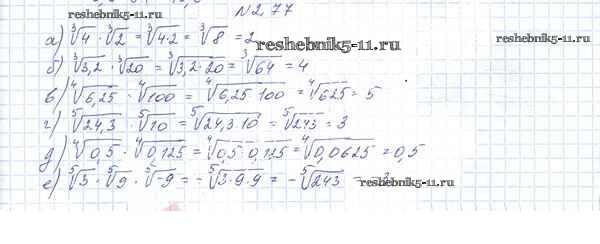 reshebnik5-11.ru
№2.77
а) ∛4 · ∛2 = ∛4·2 = ∛8 = 2 reshebnik5-11.ru
б) ∛3,2 · ∛20 = ∛3,2·20 = ∛64 = 4
в) ⁴√6,25 · ⁴√100 = ⁴√6,25·100 = ⁴√625 = 5
г) ⁵√24,3 · ⁵√10 = ⁵√24,3·10 = ⁵√243 = 3
д) ⁴√0,5 · ⁴√0,125 = ⁴√0,5·0,125 = ⁴√0,0625 = 0,5
е) ⁵√3 · ⁵√9 · ⁵√-9 = - ⁵√3·9·9 = - ⁵√243 = -3
reshebnik5-11.ru